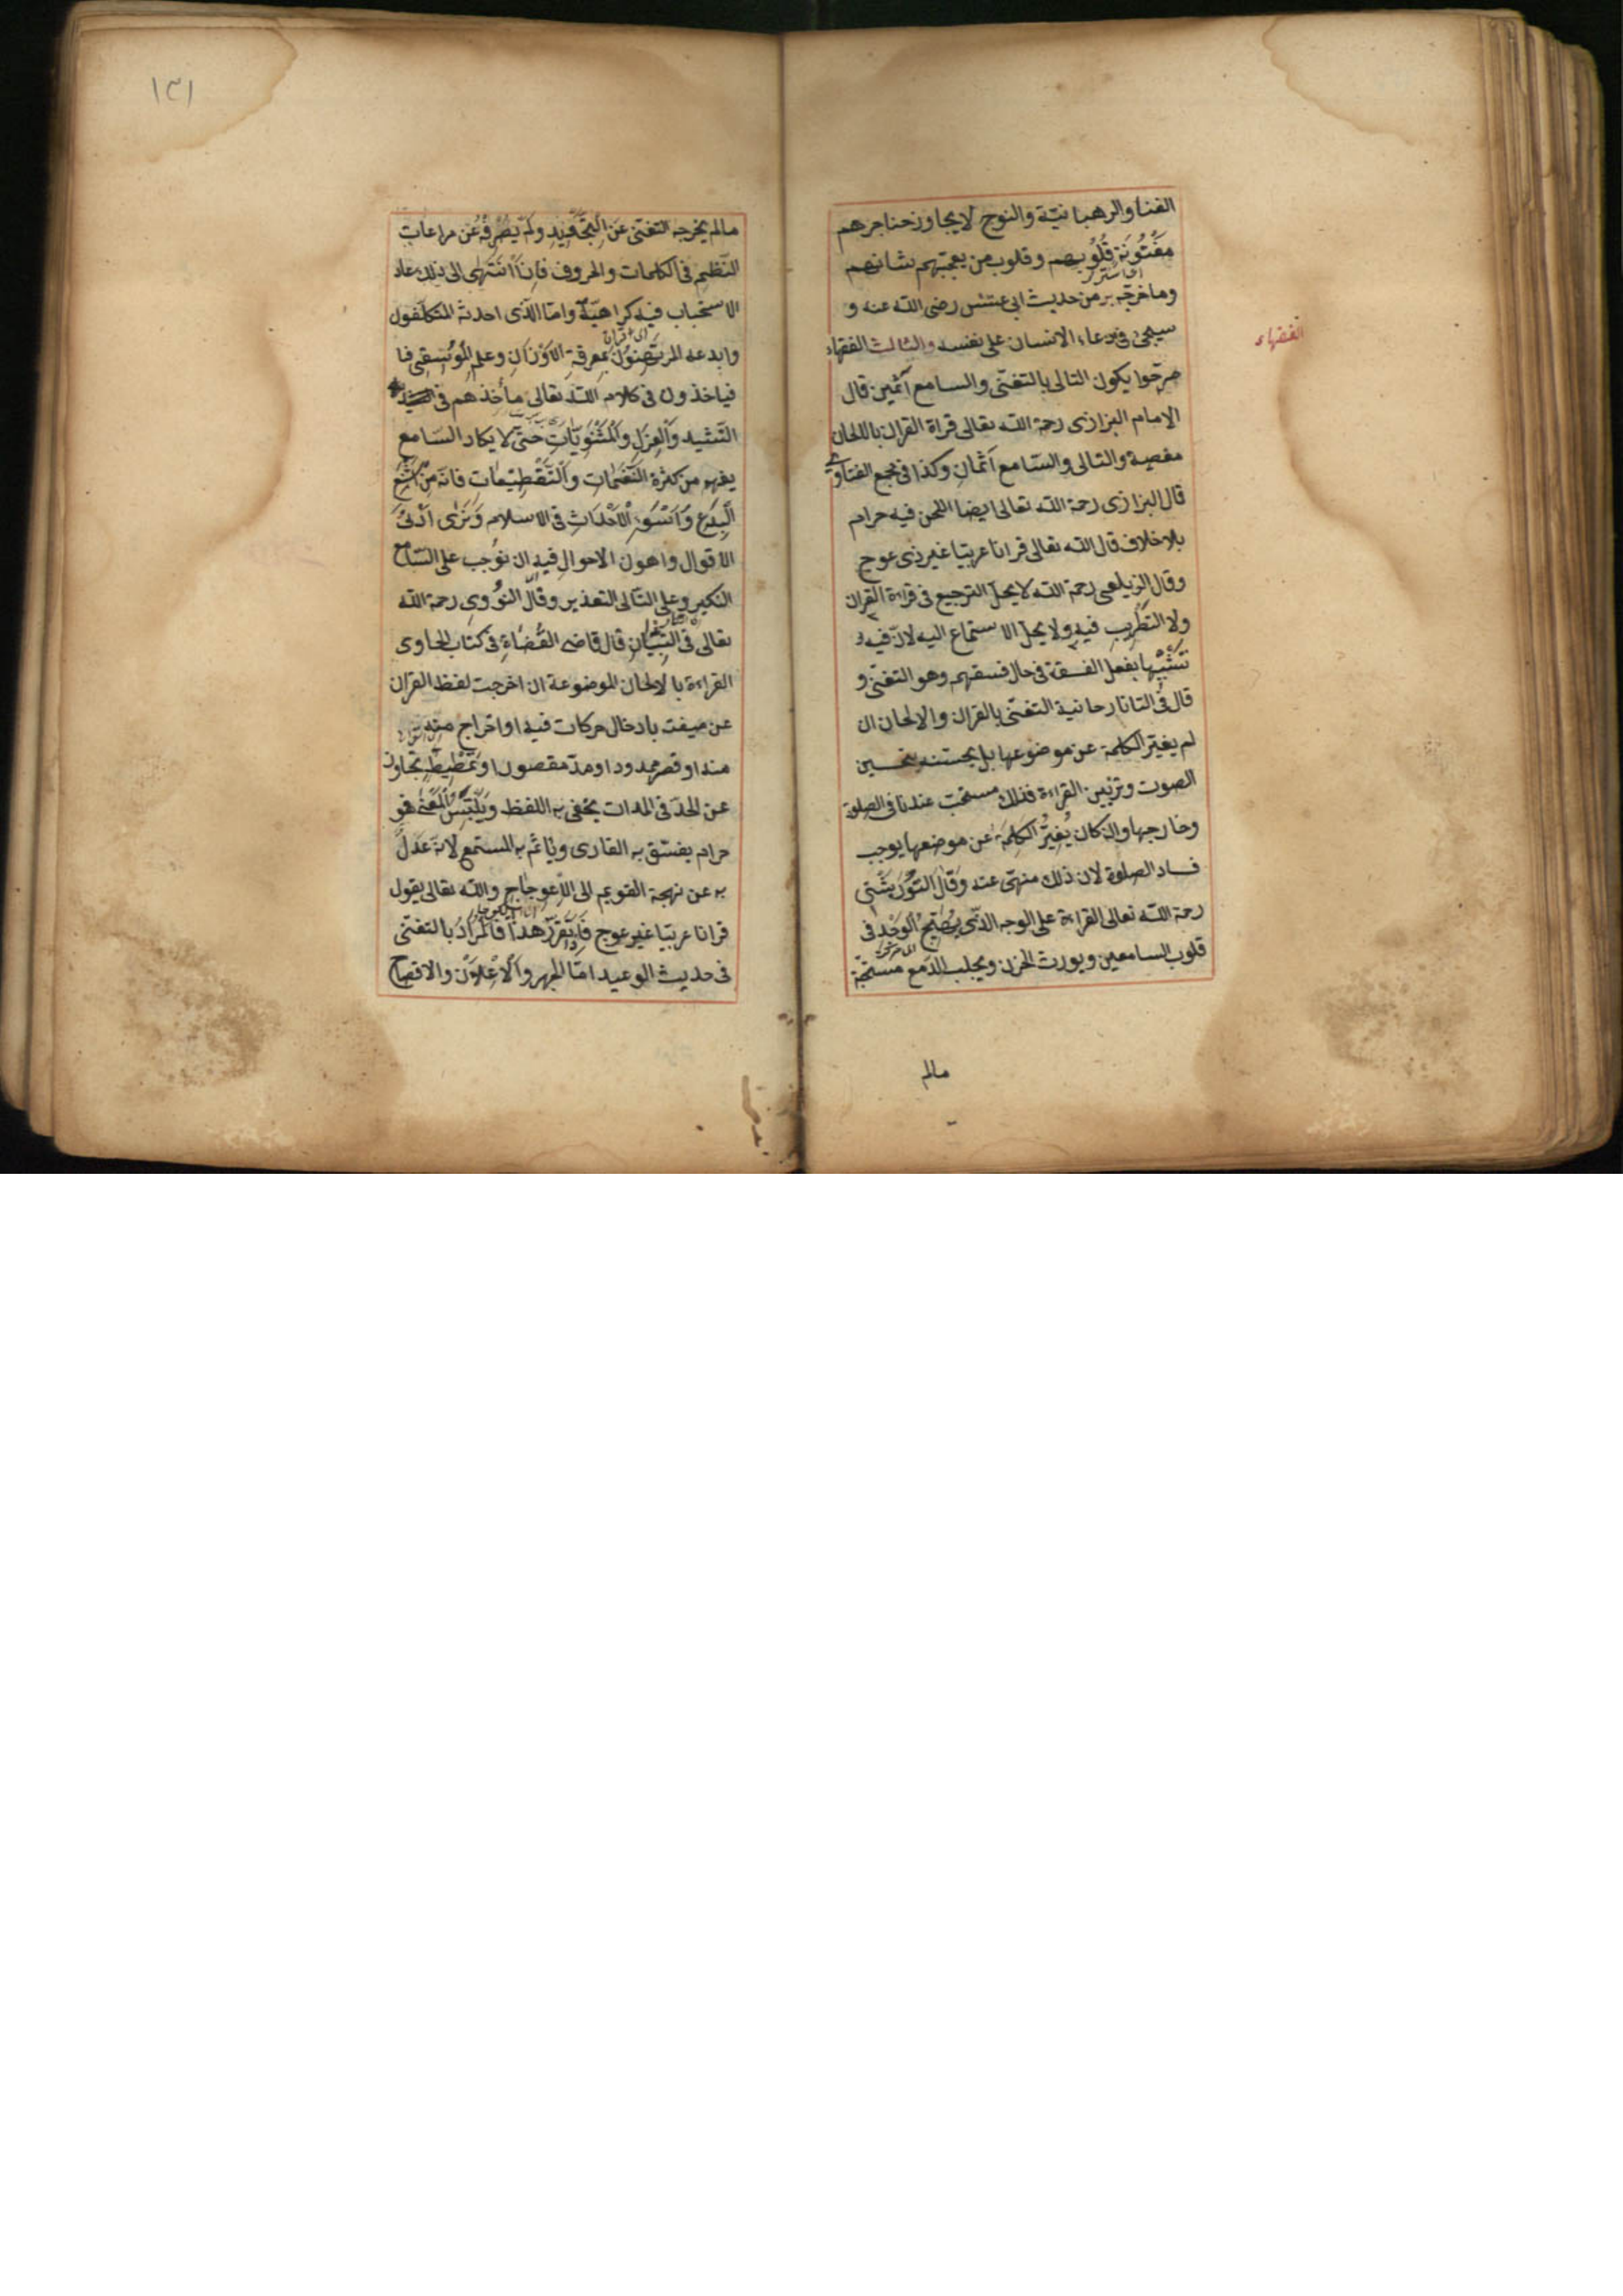 الغناء والرهبانية والنوح لا يجاوز حناجرهم
مَفْتُونَة قُلُوبهم وقلوب من يعجبهم شانهم
وما خرّجه بر من حديث ابى عبس رضى الله عنه و
سيجئ فى دعاء الانسان على نفسه والثالث الفقهاء
الفقهاء
صرّحوا بكون التالى بالتغنّى والسامع آثمين قال
الامام البزازى رحمة الله تعالى قراة القران باللحان
معصية والتالى والسّامع آثمان وكذا فى مجمع الفتاوى
قال البزازى رحمة الله تعالى ايضا اللحن فيه حرام
بلا خلاف قال الله تعالى قرانا عربيا غير ذى عوج
وقال الزيلعى رحمة الله لا يحلّ الترجيع فى قراءة القران
ولا التطريب فيه ولا يحلّ الاستماع اليه لانّ فيه
تشبّها بفعل الفسقة فى حال فسقهم وهو التغنّى و
قال فى التاتارحانية التغنّى بالقران والالحان ان
لم يغيّر الكلمة عن موضوعها بل يحسنه تحسين
الصوت وتزيين القراءة فذلك مستحبّ عندنا فى الصلوة
وخارجها وان كان يُغيّرُ الكلمة عن موضعها يوجب
فساد الصلوة لان ذلك منهىّ عنه وقال التّوربشتى
رحمة الله تعالى القراءة على الوجه الذى يُهيّجُ الوَجْد فى
قلوب السامعين ويورث الحزن ويجلب الدّمع مستحبّة
مالم
١٣١
مالم يخرجه التغنى عن التجويد ولم يصرفه عن مراعات
النّظم فى الكلمات والحروف فاذا انتهى الى ذلك عاد
الاستحباب فيه كراهيّة وامّا الّذى احدثه المتكلّفون
وابدعه المرتهنون بمعرفة الاوزان وعلم الموسيقى
فياخذون فى كلام الله تعالى مأخذهم فى
التّشيد والغزل والمثنويّات حتّى لا يكاد السّامع
يفهم من كثرة النّغمات والتّقطيعات فانّه من اشنع
البدع واسوء الاحداث فى الاسلام ونرى ادنى
الاقوال واهون الاحوال فيه ان نوجب على السّامع
النكير وعلى التّالى التعذير وقال النّووى رحمة الله
تعالى فى التّبيان قال قاضى القُضاة فى كتاب الحاوى
القراءة بالالحان الموضوعة ان اخرجت لفظ القران
عن صيغته بادخال حركات فيه او اخراج
منه او قصر ممدود او مدّ مقصور او تمطيط تجاوز
عن الحدّ فى المدات يخفى به اللفظ ويلتبس المعنى فهو
حرام يفسّق به القارى وياثم به المستمع لانّه عدل
به عن نهجه القويم الى الاعوجاج والله تعالى يقول
قرانا عربيّا غير عوج فاذا تقرّر هذا فالمراد بالتغنّى
فى حديث الوعيد امّا الجهر والاعلان والافصاح